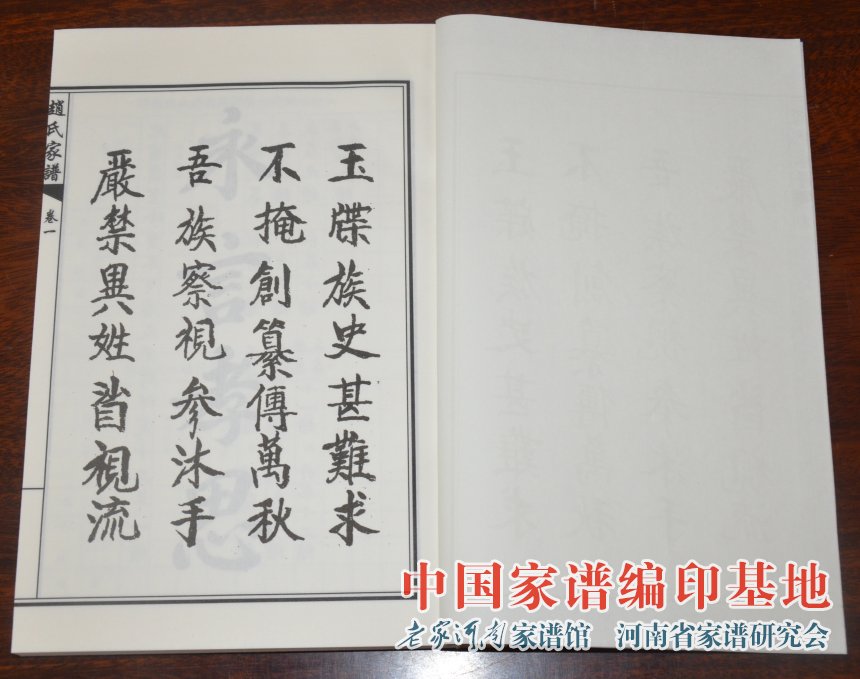 玉牒族史甚難求
不掩創纂傳萬秋
吾族察視參沐手
嚴禁異姓眢視流
趙氏家譜
卷一
永言孝思
中国家谱编印基地
老家河南家谱馆 河南省家谱研究会